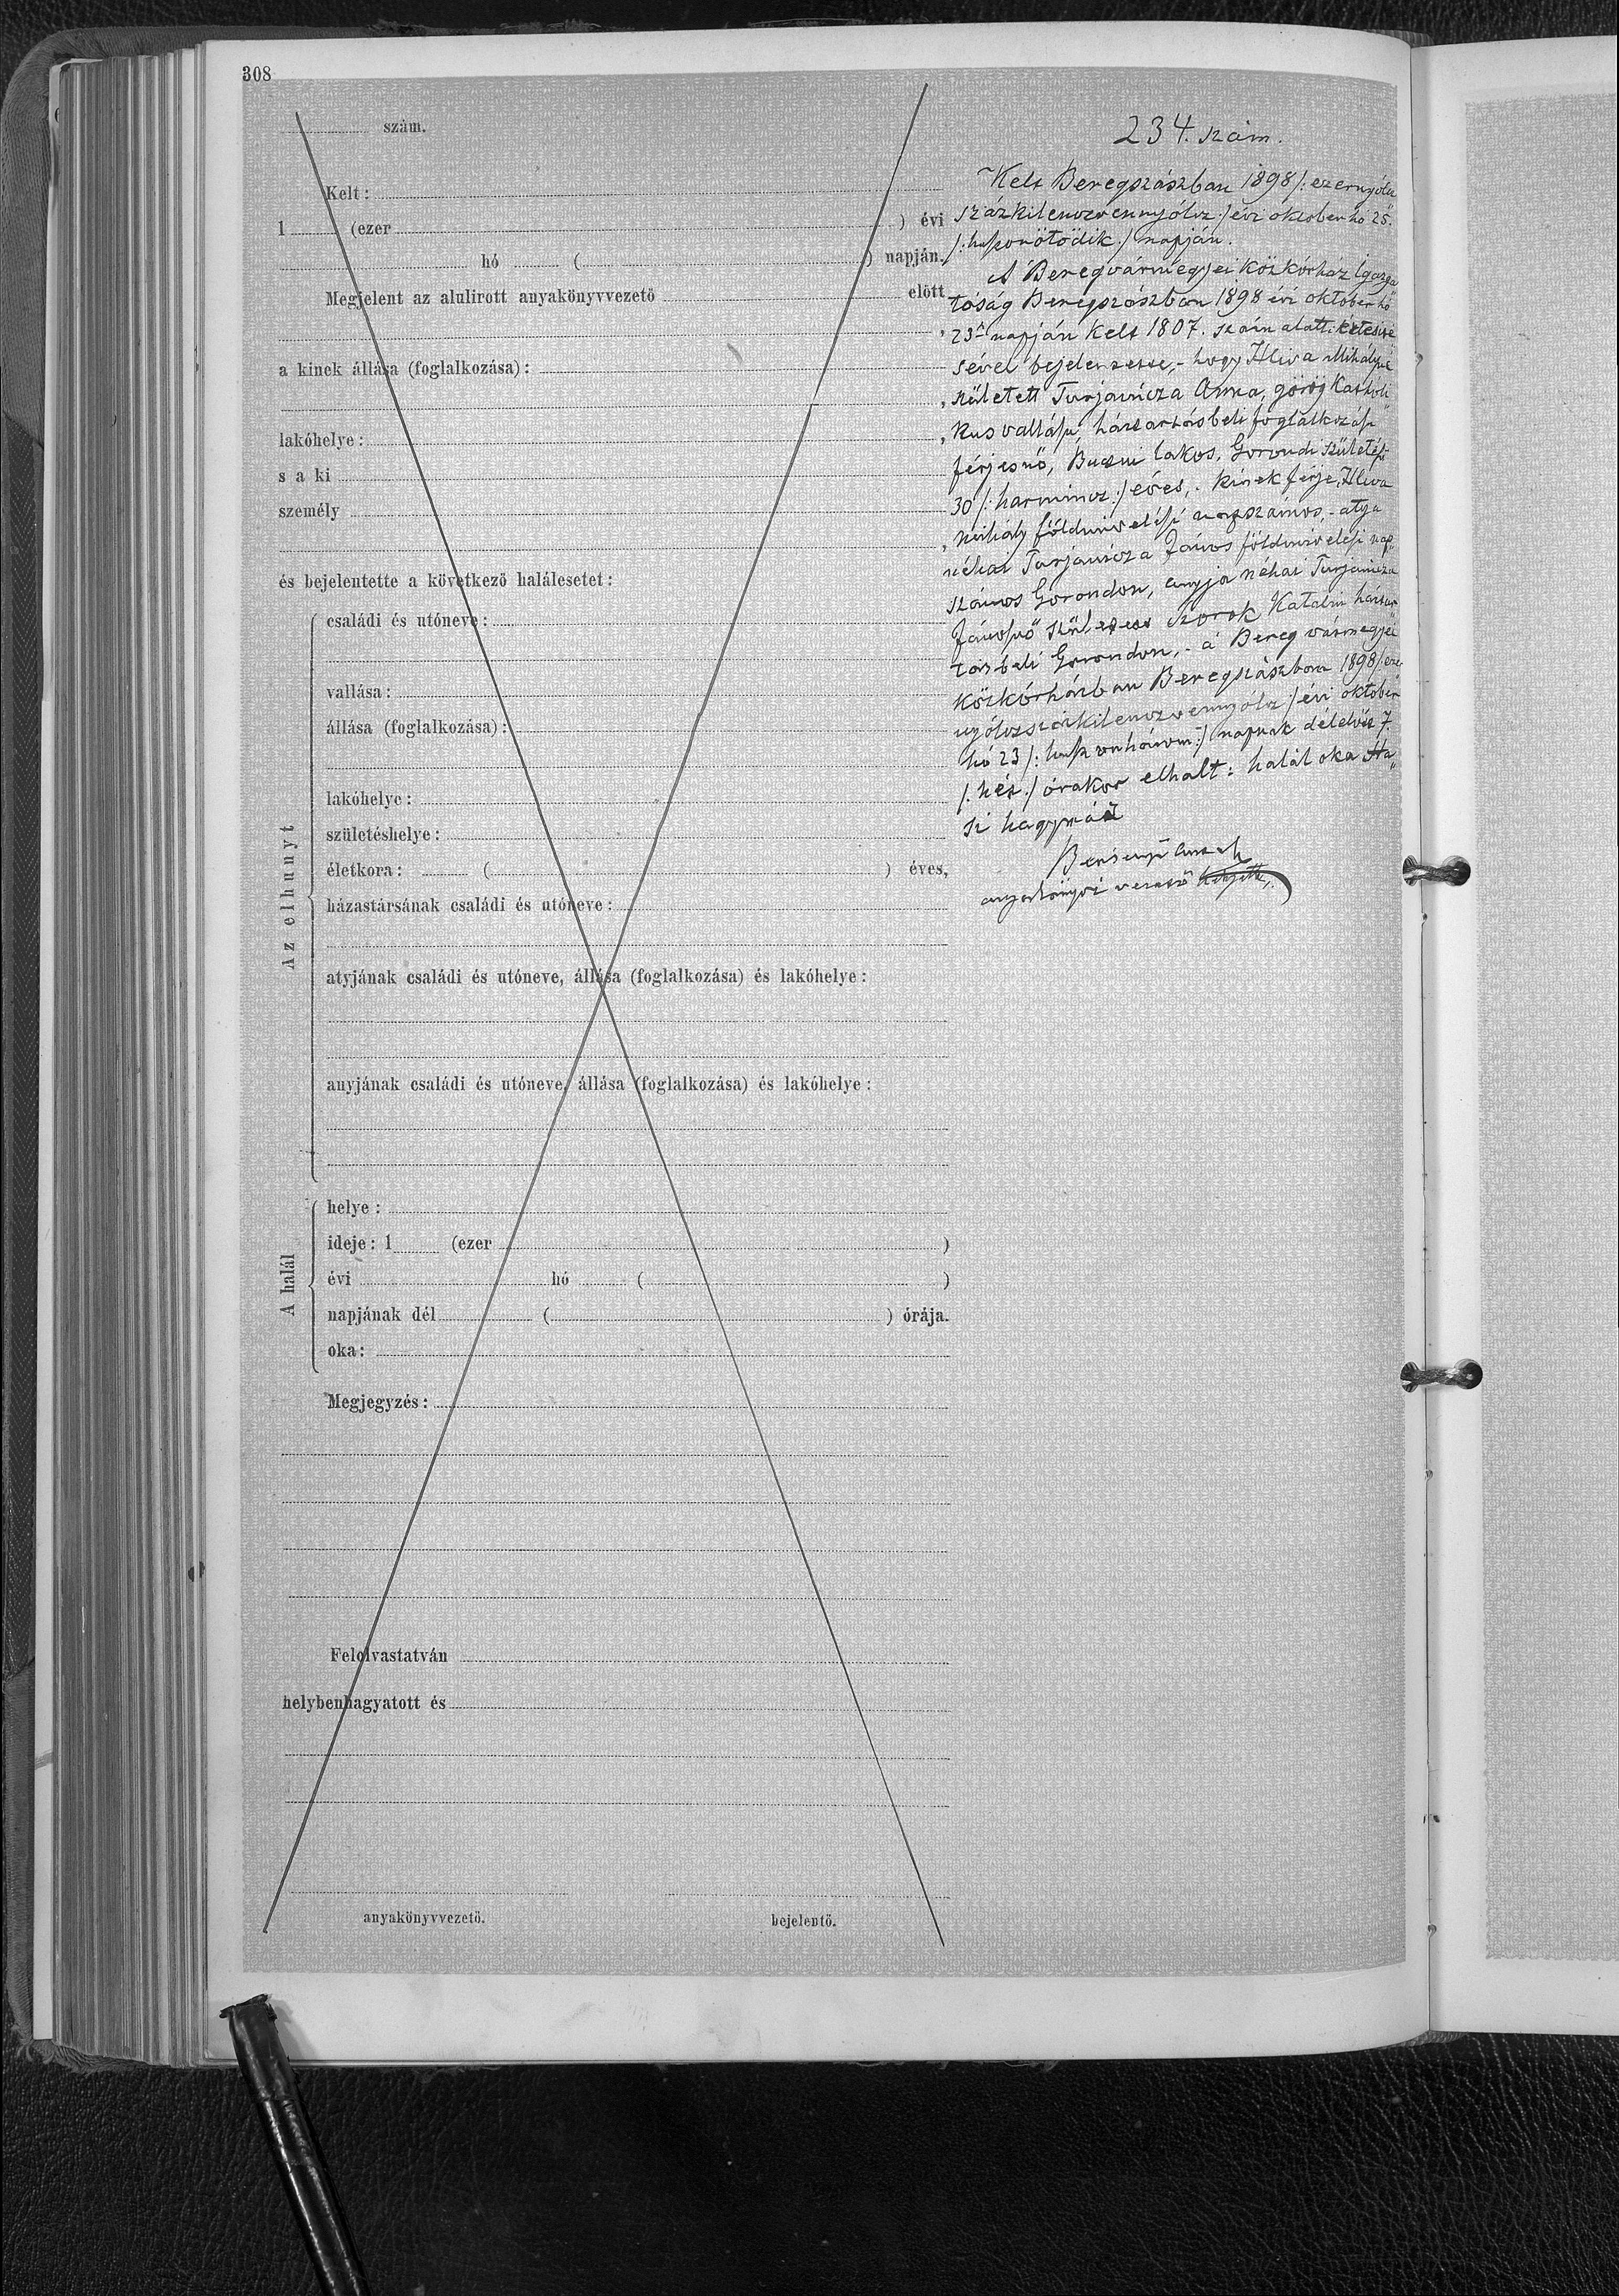 308
szám.
Kelt:
1 (ezer ) évi
hó ( ) napján.
Megjelent az alulirott anyakönyvvezető előtt
,
a kinek állása (foglalkozása):
,
lakóhelye: ,
s a ki
személy
,
és bejelentette a következő halálesetet:
Az elhunyt
családi és utóneve:
vallása:
állása (foglalkozása):
lakóhelye:
születéshelye:
életkora: ( ) éves,
házastársának családi és utóneve:
atyjának családi és utóneve, állása (foglalkozása) és lakóhelye:
anyjának családi és utóneve, állása (foglalkozása) és lakóhelye:
A halál
helye:
ideje: 1 (ezer )
évi hó ( )
napjának dél ( ) órája.
oka:
Megjegyzés:
Felolvastatván
helybenhagyatott és
anyakönyvvezető. bejelentő.
234. szám.
Kelt Beregszászban 1898 /: ezernyolcz
százkilenczvennyólcz :/ évi október hó 25.
/: huszonötödik :/ napján.
A Beregvármegyei Közkórház Igazga
tóság Beregszászban 1898 évi október hó
23n napján kelt 1807. szám alatt értesíté
sével bejelentette, - hogy Hliva Mihályné
született Turjanicza Anna, görög katholi
kus vallásu, háztartásbeli foglalkozásu
férjesnő, Bucsui lakos, Gorondi születésü
30 /: harmincz :/ éves, - kinek férje, Hliva
Mihály földmivelési napszámos, - atyja
néhai Turjanicza János földmivelési nap
számos Gorondon, anyja néhai Turjanicza
Jánosnő született Katalin háztar
tásbeli Gorondon, - a Bereg vármegyei
Közkórházban Beregszászban 1898 /: ezer
nyólczszázkilenczvennyólcz :/ évi október
hó 23 /: huszonhárom :/ napnak délelőtt 7.
/: hét :/ órakor elhalt: halál oka Ha
si hagymáz
anyakönyvi vezető helyettes